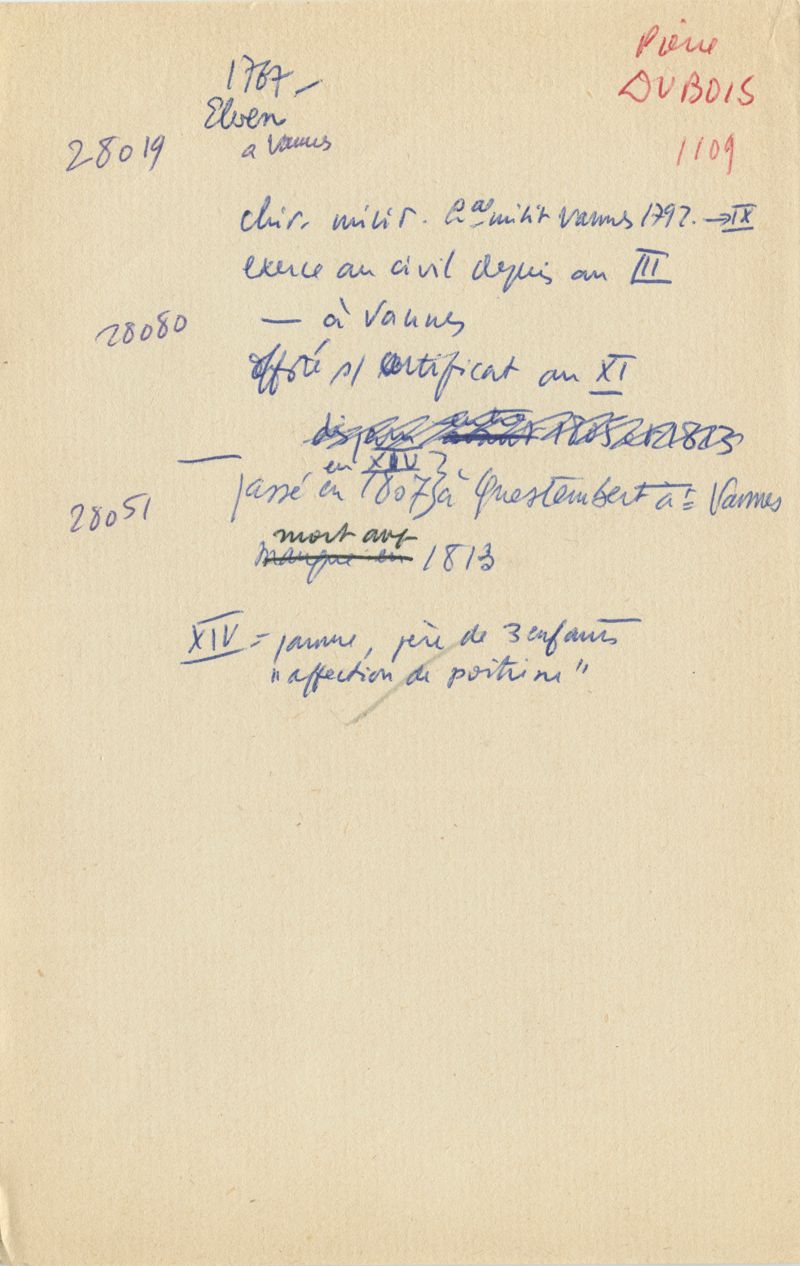 Pierre
DUBOIS
1109
1767 –
Elven
à Vannes
28019
chir. milit. milit Vannes 1792. → IX
exerce au civil depuis an III
28080 — à Vannes
s/ certificat an XI
disparu entre 1805 et 1813
en XIV
28051
passé en 1807 à Questembert à Vannes
manque en mort avt 1813
XIV = pauvre, père de 3 enfants
"affection de poitrine"